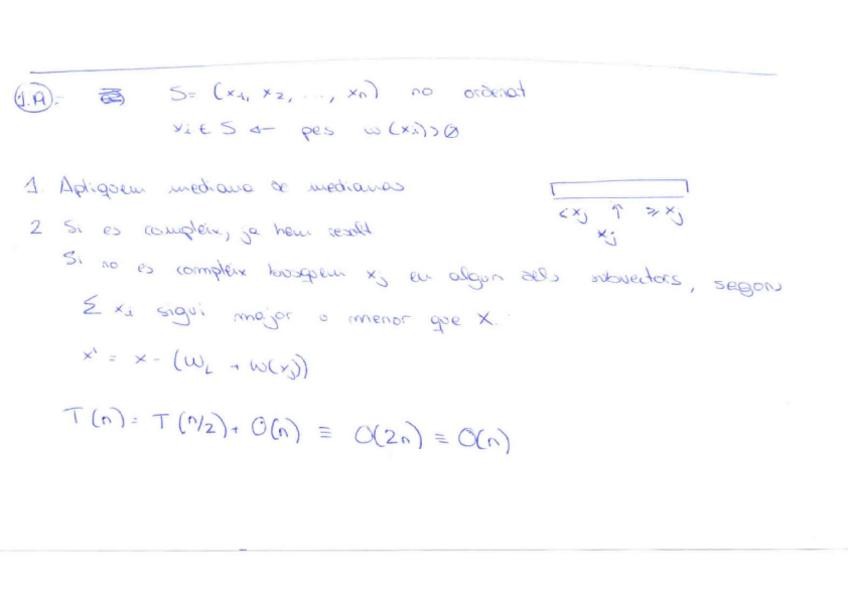 1.A. S = (x₁, x₂, ..., xₙ) no ordenat
xᵢ ∈ S ← pes w(xᵢ) > 0
1. Apliquem mediana de medianas
<xⱼ ↑ ≥xⱼ
xⱼ
2 Si es compleix, ja hem resolt
Si no es compleix busquem xⱼ en algun dels subvectors, segons
Σ xᵢ sigui major o menor que X.
x' = x - (W_L + w(xⱼ))
T(n) = T(n/2) + O(n) ≡ O(2n) ≡ O(n)